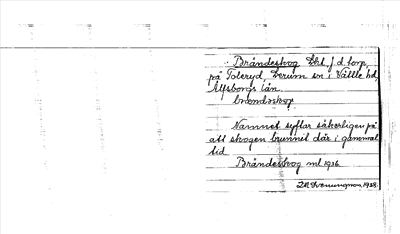 Brändeskog Lht, f.d. torp
på Toleryd, Lerum sn i Vättle hd,
Älfsborgs län.
brændsskog

Namnet syftar säkerligen på
att skogen brunnit där i gammal
tid
Brändeskog ml 1936
1938.